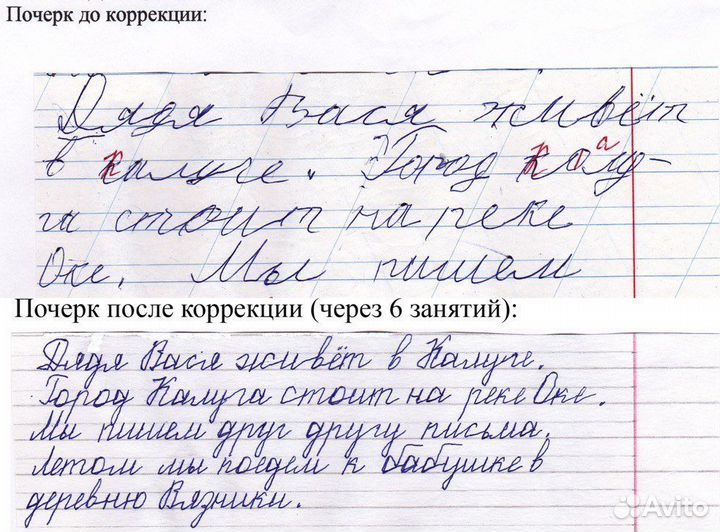 Почерк до коррекции:
Дядя Вася живёт
в калуге. Город кол-
га стоит на реке
Оке. Мы пишем
Почерк после коррекции (через 6 занятий):
Дядя Вася живёт в Калуге.
Город Калуга стоит на реке Оке.
Мы пишем друг другу письма.
Летом мы поедем к бабушке в
деревню Вязники.
Avito